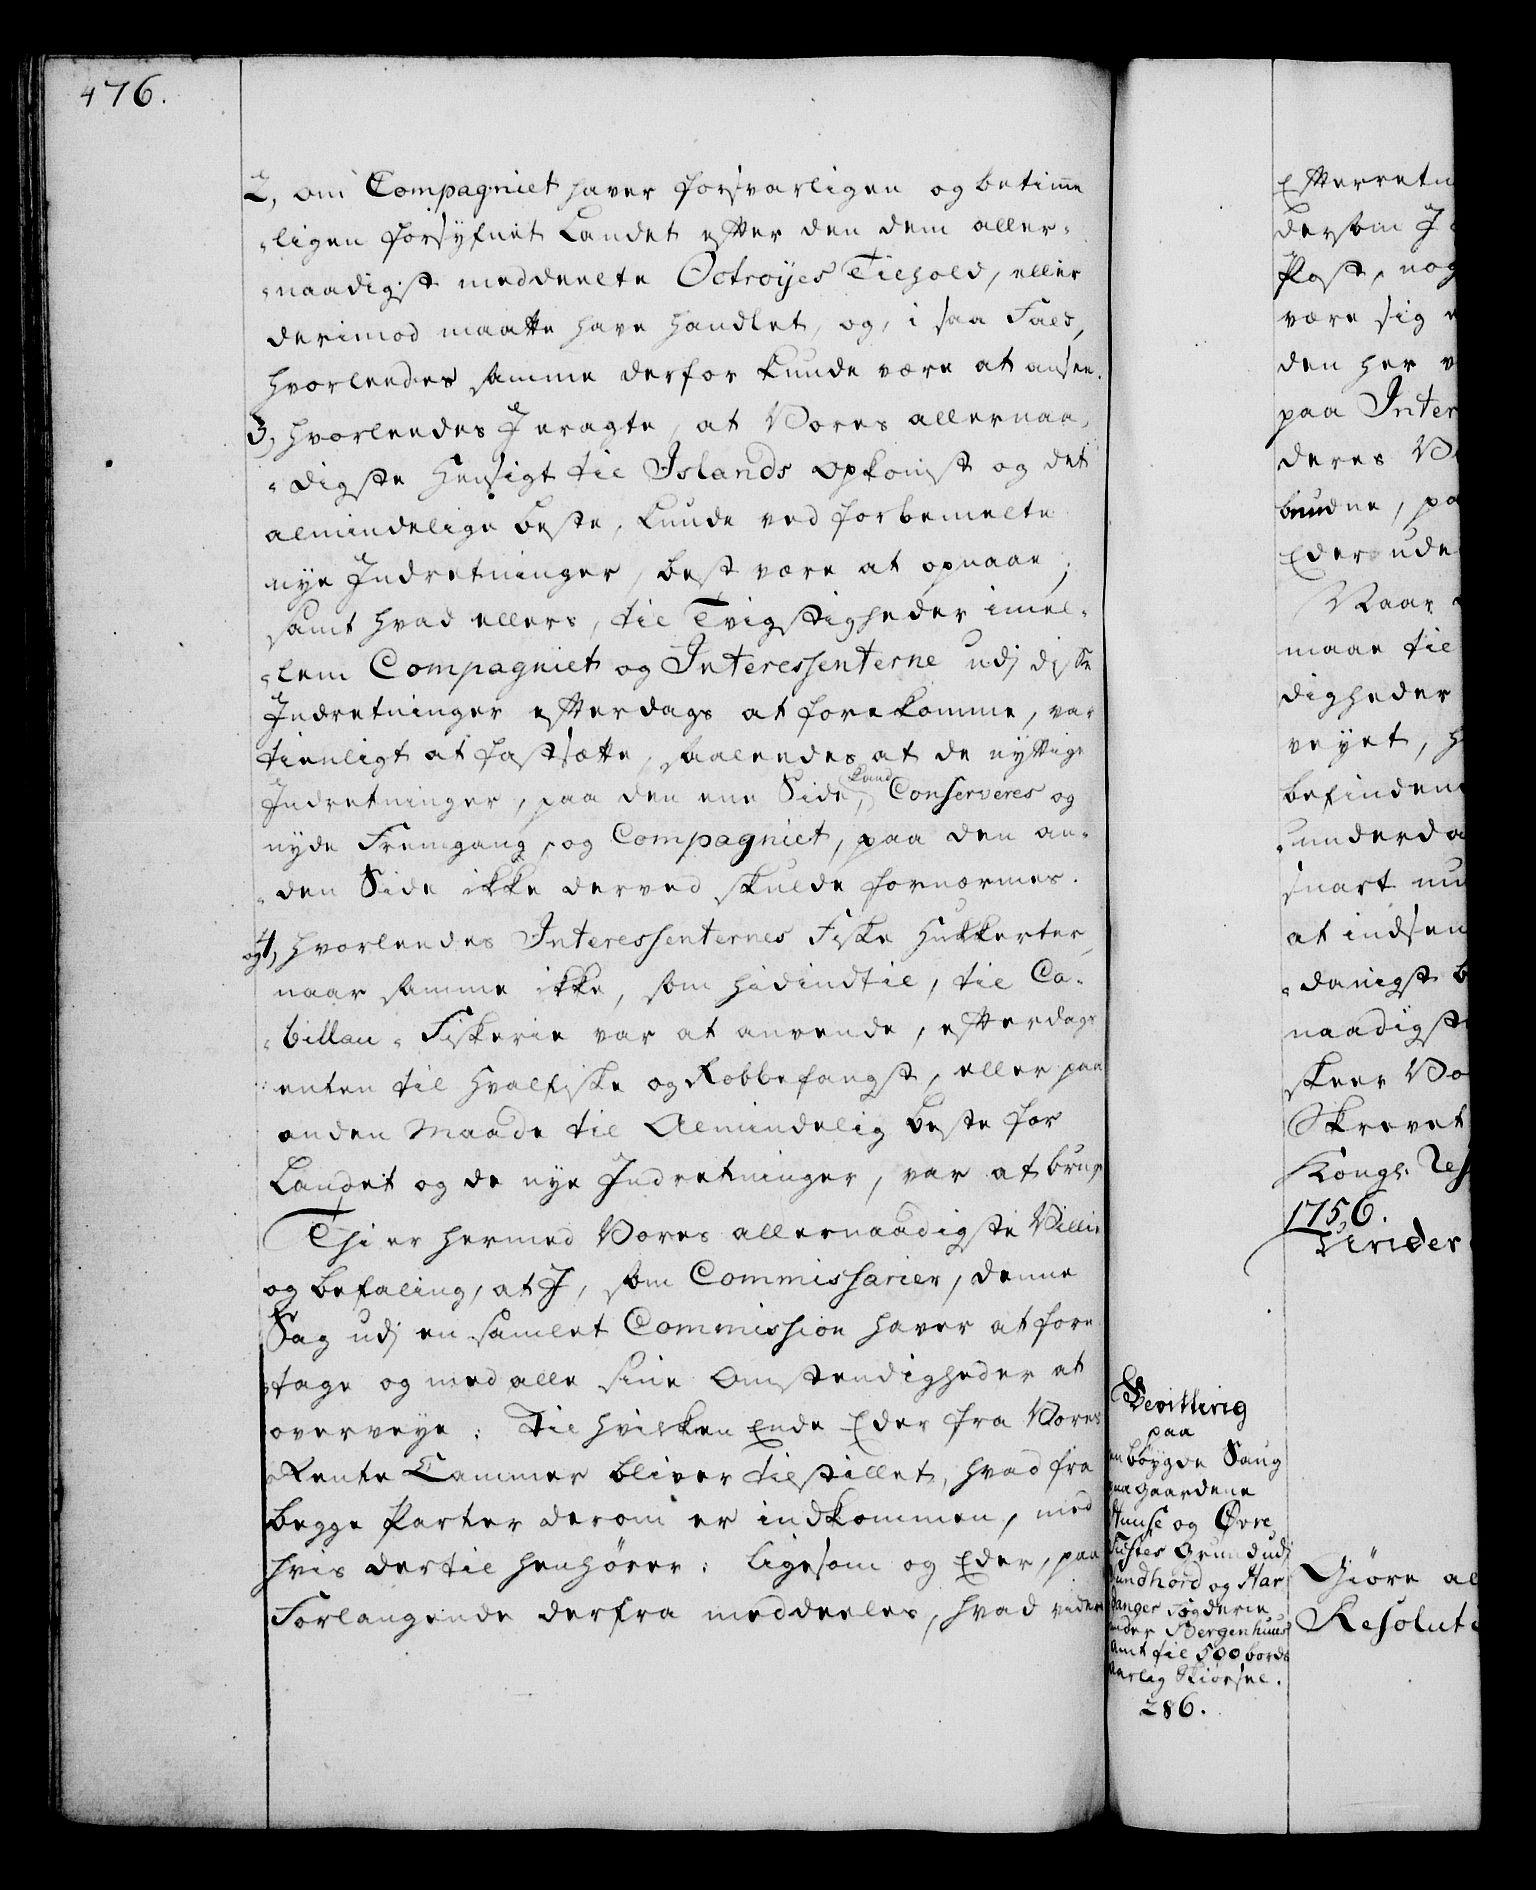 476.
2, om Compagniet haver forsvarligen og betime
-ligen forsÿfnet Landet efter den dem aller-
-naadigst meddeelte Octroÿes Tilhold, eller
derimod maatte have handlet, og, i saa Fald,
hvorlendes samme derfor kunde være at ansee.
3, hvorlendes I eragte, at Vores allernaa-
-digste Hensigt til Islands opkomst og det
almindelige beste, kunde ved forbemelte
nye Indretninger, best være at opnaae;
samt hvad ellers, til Tvistigheder imel-
-lem Compagniet og Interessenterne udj disse
Indretninger efterdags at forekomme, var
tienligt at fastsætte, saaledes at de nyttige
Indretninger, paa den ene Side, kand Conserveres og
nyde Fremgang, og Compagniet, paa den an-
-den Side ikke derved skulde fornærmes.
og 4, hvorlendes Interessenternes Fiske Hukkerter,
naar samme ikke, som hidindtil, til Ca-
-billau-Fiskerie var at anvende, efterdags
enten til Hvalfiske og Robbefangst, eller paa
anden Maade til Almindelig beste for
Landet og de nye Indretninger, var at bruge
Thi er hermed Vores allernaadigste Villie
og befaling, at I, som Commissarier, denne
Sag udj en samlet Commission haver at fore
tage og med alle sine Omstendigheder at
overveye: Til hvilken Ende Eder fra Vores
Rente Cammer bliver tilstillet, hvad fra
begge Parter derom er indkommen, med
hvis dertil henhører: ligesom og Eder, paa
Forlangende derfra meddeeles, hvad videre
Efterretn
dersom I
Post, nog
være sig e
den her v
paa Inter
deres V
bundne, pa
Eder ude
Naar
maae til
digheder
veyet, h
befinden
-underda
snart mu
at indsen
-danigst b
naadigst
skeer Vo
Skrevet
Kongl. Res
1756.
Urider
Bevilling
paa
en bøygde Saug
paa Gaardene
Huuse og Øvre
Tustes Grund udj
Sundhord og Har
danger Fogderie
under Bergenhuus
Amt til 500 bords
aarlig Skiørsel.
286.
Giøre al
Resolut